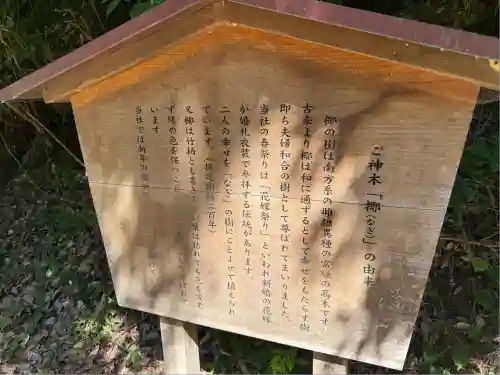 ご神木「梛(なぎ)」の由来
梛の樹は南方系の雌雄異種の常緑の高木です。
古来より梛は和に通ずるとして幸せをもたらす樹
即ち夫婦和合の樹として尊ばれてまいりました。
当社の春祭りは「花嫁祭り」といわれ新婚の花嫁
が婚礼衣装で参拝する伝統があります
二人の幸せを「なぎ」の樹にことよせて植えられ
ています。(推定樹齢 百年)
又梛は竹柏とも書き 葉は枯れても色を変え
ず緑の色を保つこと
います
当社では新年の